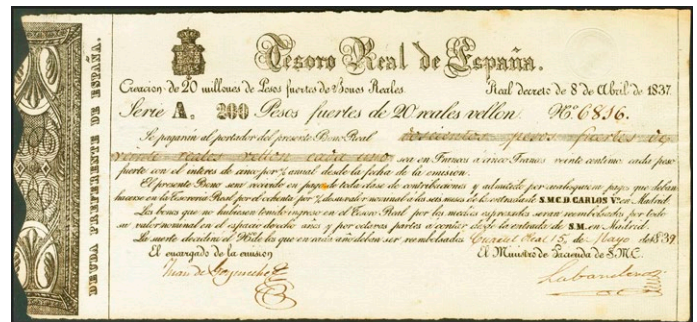 DEUDA PREFERENTE DE ESPAÑA.
Tesoro Real de España.
Creacion de 20 millones de Pesos fuertes de Bonos Reales. Real decreto de 8 de Abril de 1837.
Serie A. 200 Pesos fuertes de 20 reales vellon. Nº 6816.
Se pagarán al portador del presente Bono Real doscientos pesos fuertes de
veinte reales vellon cada uno, sea en Francos a cinco Francos veinte centimos cada peso
fuerte con el interes de cinco por % anual desde la fecha de la emision.
El presente Bono será recibido en pago de toda clase de contribuciones y admitido por cualesquiera pagos que deban
hacerse en la Tesoreria Real por el ochenta por % de su valor nominal a los seis meses de la entrada de S.M.C.D. CARLOS Vº. en Madrid.
Los bonos que no hubiesen tenido ingreso en el Tesoro Real por los medios espresados seran reembolsados por todo
su valor nominal en el espacio de ocho años y por octavas partes a contar desde la entrada de S.M. en Madrid.
La suerte decidirá el Nº de los que en cada año deban ser reembolsados Cuartel Real 15, de Mayo de 1839.
El encargado de la emision El Ministro de Hacienda de S.M.C.
Juan de Labandero